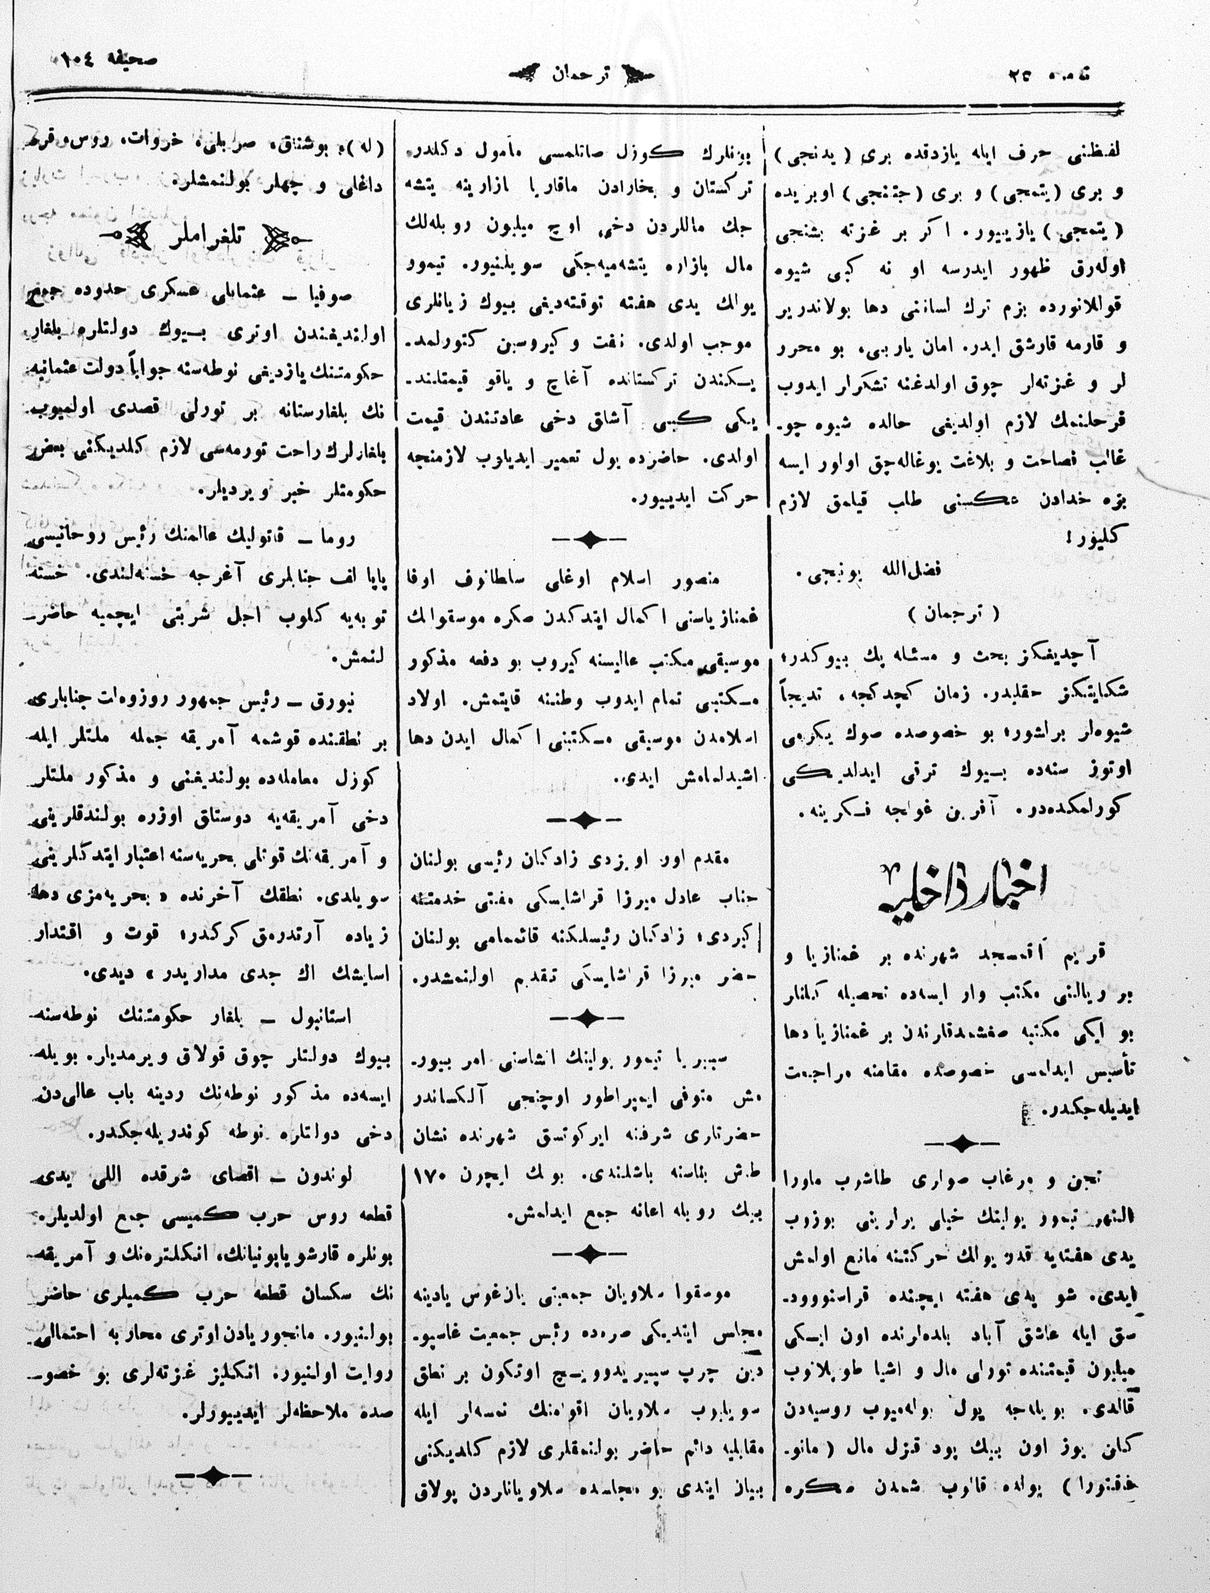 صحیفه ١٠٤
ترجمان
٢٥
لفظنی حرف ایله یازدقده بری (یدنجی)
و بری (یتمجی) و بری (جتنجی) اوبریده
(یتمجی) یازییور. اکر بر غزته بشنجی
اوله‌رق ظهور ایدرسه او نه کبی شیوه
قوللانورده بزم ترك لسانتی دها بولاندریر
و قارمه قارشق ایدر. امان یاربی، بو محرر
لر و غزته‌لر چوق اولدغنه تشکرلر ایدوب
فرحلنمك لازم اولدیغی حالده شیوه جو-
غالب فصاحت و بلاغت یوغاله‌جق اولور ایسه
بزه خدادن عکسنی طلب قیلمق لازم
کلیور!
فضل‌الله یونیجی.
(ترجمان)
آچدیغکز بحث و مسئله پك بیوکدر؛
شکایتکز حقلیدر. زمان کچدکجه، تدیجاً
شیوه‌لر براشور؛ بو خصوصده صوك یکرمی
اوتوز سنه‌ده بیوك ترقی ایدلدیکی
کورلمکده‌در. آفرین غواجه فکرینه.
اخبار داخلیه
قریم آقمسجد شهرنده بر غمنازیا و
بر ریالنی مکتب وار ایسه‌ده تحصیله کلنلر
بو ایکی مکتبه صغشمدقلرندن بر غمنازیا دها
تأسیس ایدلمسی خصوصده مقامنه مراجعت
ایدیله‌جکدر.
تجن و مرغاب صولری طاشوب ماورا
النهر تیمور یولینك خیلی یرلرینی بوزوب
یدی هفته‌یه قدر یولك حرکتنه مانع اولمش
ایدی. شو یدی هفته ایچنده قراسنووود-
سق ایله عاشق آباد بلده‌لرنده اون ایکی
میلیون قیمتنده تورلی مال و اشیا طوپلانوب
قالدی. بویله‌جه یول بوله‌میوب روسیه‌دن
کلن یوز اون بیك پود قزل مال (مانو-
فقتورا) یولده قالوب شمدن صکره
بونلرك کوزل صاتلمسی مأمول دکلدر.
ترکستان و بخارادن ماقاریا بازارینه یتشه
جك ماللردن دخی اوچ میلیون روبله‌لك
مال بازاره یتشه‌میه‌جکی سویلنیور. تیمور
یولك یدی هفته توقته‌دیغی بیوك زیانلری
موجب اولدی. نفت و کیروسین کتورلمد-
یکندن ترکستانده آغاچ و یاقو قیمتلند-
یکی کبی آشلق دخی عادتندن قیمت
اولدی. حاضرده یول تعمیر ایدیلوب لازمنجه
حرکت ایدییور.
منصور اسلام اوغلی سلطانوف اوفا
غمنازیاسنی اکمال ایتدکدن صکره موسقوانك
موسیقی مکتب عالیسنه کیروب بو دفعه مذکور
مکتبی تمام ایدوب وطننه قایتمش. اولاد
اسلامدن موسیقی مکتبنی اکمال ایدن دها
اشیدلمامش ایدی.
مقدم اور اویزدی زادکان رئیسی بولنان
جناب عادل میرزا قراشایسکی مفتی خدمتنه
کیردی؛ زادکان رئیسلکنه قائممامی بولنان
حضر میرزا قراشایسکی تقدیم اولنمشدر.
سیبریا تیمور یولینك انشاسنی امر بیور-
مش متوفی ایمپراطور اوچنجی آلکساندر
حضرتلری شرفنه ایرکوتسق شهرنده نشان
طاش بناسنه باشلندی. بونك ایچون ١٧٠
بیك روبله اعانه جمع ایدلمش.
موسقوا سلاویان جمعیتی یان‌غوس یادینه
مجلس ایتدیکی صره‌ده رئیس جمعیت غاسپو-
دین چرپ سپیریدوویچ اوتکون بر نطق
سویلیوب سلاویان اقوامنك نمسه‌لر ایله
مقابلیه دائم حاضر بولنمقلری لازم کلدیکنی
بیان ایتدی بو مجلسده سلاویانلردن پولاق
(له)، بوشناق، صربلی، خروات، روس، قره
داغلی و چهلر بولنمشلر.
تلغراملر
صوفیا ــ عثمانلی عسکری حدوده جمع
اولندیغندن اوتری بیوك دولتلره بلغار
حکومتنك یازدیغی نوطه‌سنه جواباً دولت عثمانیه-
نك بلغارستانه بر تورلی قصدی اولمیوب
بلغارلرك راحت تورمه‌سی لازم کلدیکنی بعض
حکومتلر خبر ویردیلر.
روما ــ قاتولیك عالمنك رئیس روحانیسی
پاپا لف جنابلری آغرجه خسته‌لندی. خسته
توبه‌یه کلوب اجل شربتی ایچمیه حاضر-
لنمش.
نیورق ــ رئیس جمهور روزوه‌لت جنابلری
بر نطقنده قوشمه آمریقه جمله ملتلر ایله
کوزل معامله‌ده بولندیغنی و مذکور ملتلر
دخی آمریقه‌یه دوستلق اوزره بولندقلرینی
و آمریقه‌نك قوتلی بحریه‌سنه اعتبار ایتدکلرینی
سویلدی. نطقك آخرنده «بحریه‌مزی دها
زیاده آرتدرمق کرکدر؛ قوت و اقتدار
اسایشك اك جدی مداریدر» دیدی.
استانبول ــ بلغار حکومتنك نوطه‌سنه
بیوك دولتلر چوق قولاق ویرمدیلر. بویله
ایسه‌ده مذکور نوطه‌نك ردینه باب عالی‌دن
دخی دولتلره نوطه کوندریله‌جکدر.
لوندون ــ اقصای شرقده اللی یدی
قطعه روس حرب کمیسی جمع اولدیلر.
بونلره قارشو یاپونیانك، انکلتره‌نك و آمریقه-
نك سکسان قطعه حرب کمیلری حاضر
بولنیور. مانجوریادن اوتری محاربه احتمالی
روایت اولنیور. انکلیز غزته‌لری بو خصو-
صده ملاحظه‌لر ایدییورلر.